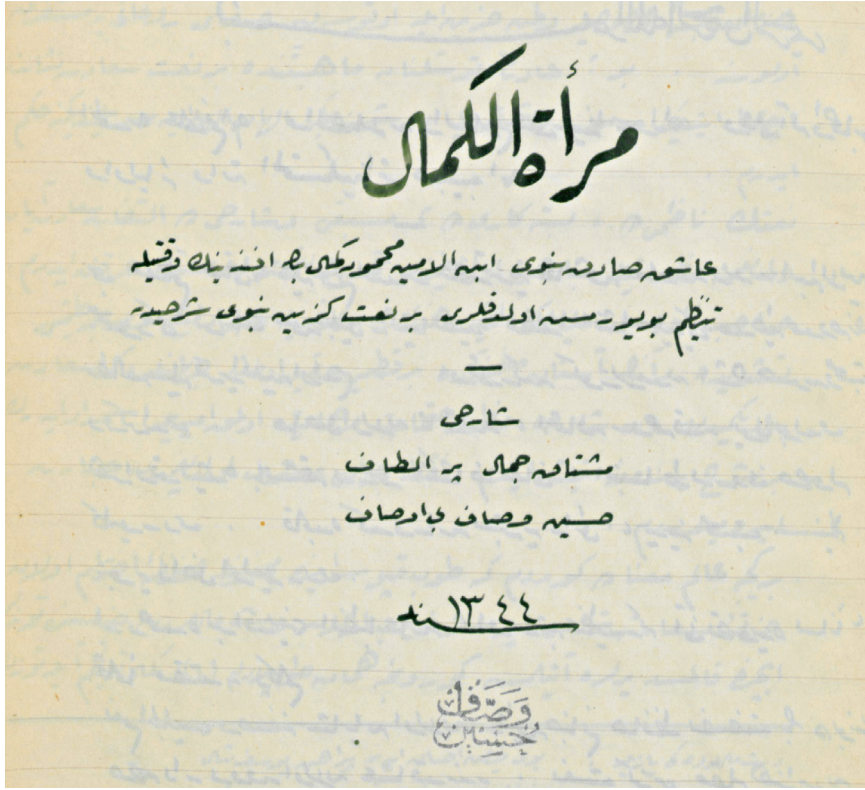 مرأة الكمال
عاشق صادق نبوى ابن الامين محمود كمال بك افندينك وقتيله
تنظيم بويورمش اولدقلرى بر نعت كزين نبوى شرحيدر
شارحى
مشتاق جمال پر الطاف
حسين وصاف بى اوصاف
سنه ١٣٤٤
وصاف
حسين